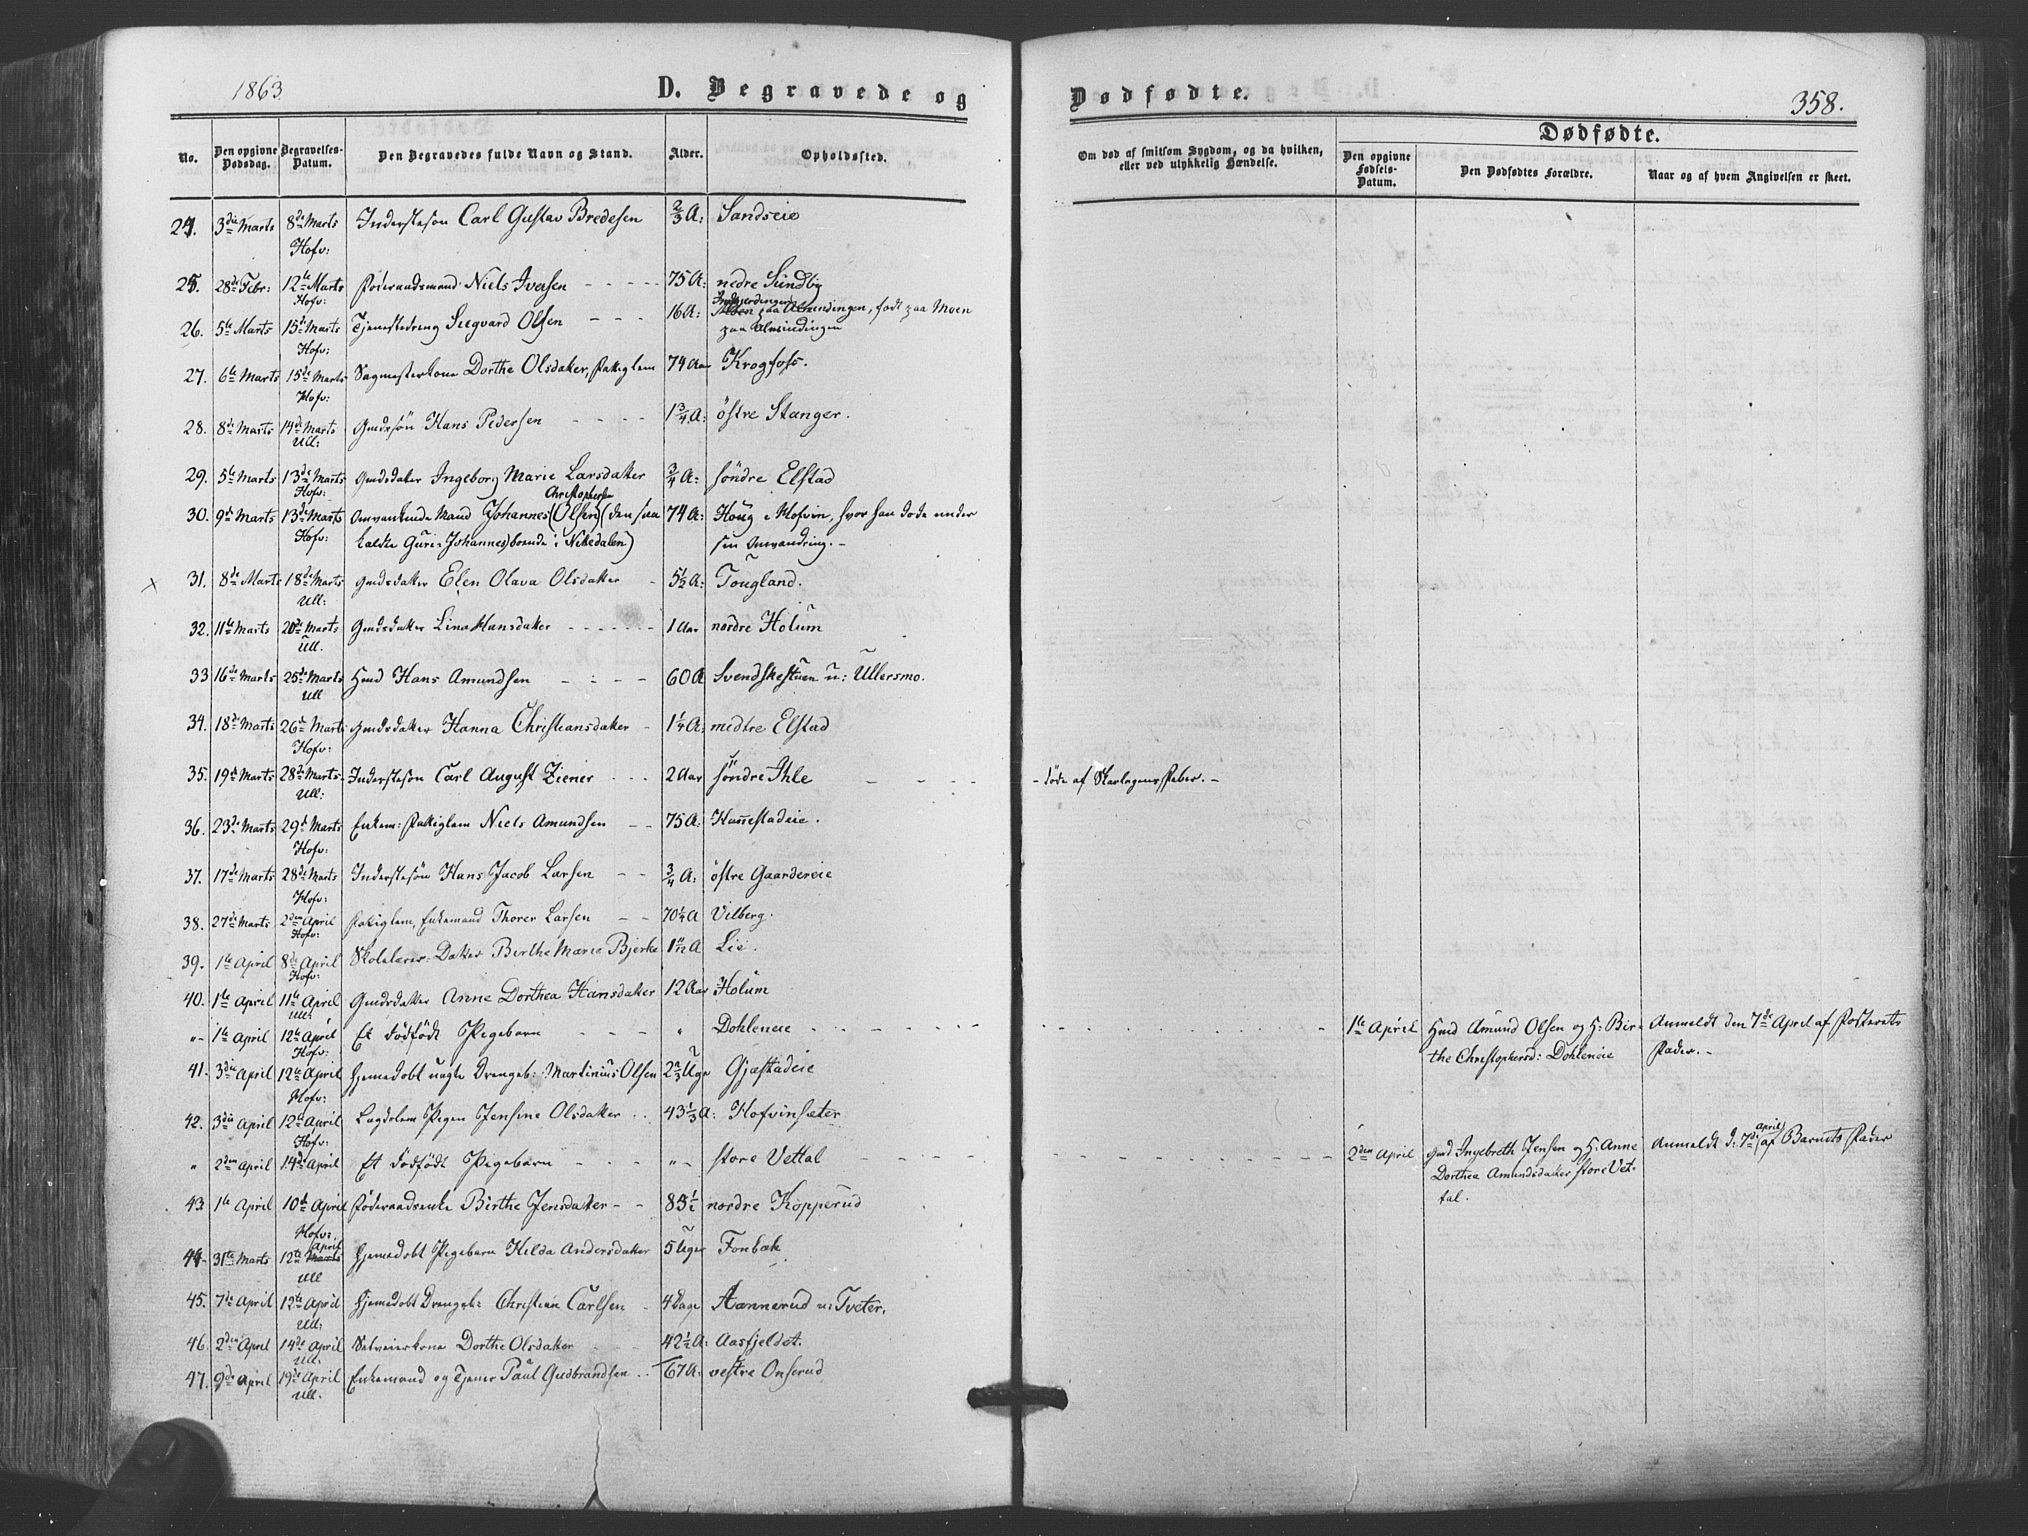 1863
D. Begravede og
Dødfødte.
358.
No.
Den opgivne Dødsdag.
Begravelses-Datum.
Den Begravedes fulde Navn og Stand.
Alder.
Opholdssted.
Om død af smitsom Sygdom, og da hvilken, eller ved ulykkelig Hændelse.
Dødfødte.
Den opgivne Fødsels-Datum.
Den Dødfødtes Forældre.
Naar og af hvem Angivelsen er skeet.
24. 3die Marts 8de Marts Inderstesøn Carl Gustav Bredesen 2/3 A: Sandseie
Hofv:
25. 28de Febr: 12te Marts Føderaadsmand Niels Iversen 75 A: nedre Sundby
Hofv:
26. 5te Marts 15de Marts Tjenestedreng Siegvard Olsen 16 A: paa Almindingen, født paa Moen
Hofv: paa Almindingen
27. 6te Marts 15de Marts Sagmesterkone Dorthe Olsdatter, Fattiglem 74 Aar Krogfoss.
Hofv:
28. 8de Marts 14de Marts Gmdssøn Hans Pedersen 1 3/4 A: østre Stanger.
Ull:
29. 5te Marts 13de Marts Gmdsdatter Ingeborg Marie Larsdatter 3/4 A: søndre Elstad
Hofv: Christophersen
30. 9de Marts 13de Marts Omvankende Mand Johannes (Olsen) (den saa 74 A: Houg i Hofvin, hvor han døde under
Hofv: kaldte Guri-Johannes) boende i Nittedalen) sin Omvandring. -
x 31. 8de Marts 18de Marts Gmdsdatter Elen Olava Olsdatter 5 1/2 A: Tougland.
Ull:
32. 11te Marts 20de Marts Gmdsdatter Lina Hansdatter 1 Aar nordre Holum
Ull.
33 16de Marts 25de Marts Hmd Hans Amundsen 60 A Svendskestuen u: Ullersmo.
Ull
34. 18de Marts 26de Marts Gmdsdatter Hanna Christiansdatter 1 1/4 A: medtre Elstad
Hofv:
35. 19de Marts 28de Marts. Inderstesøn Carl August Ziener 2 Aar søndre Ihle - døde af Skarlagensfeber. -
Ull:
36. 23de Marts 29de Marts Enkem: Fattiglem Niels Amundsen 75 A: Hassestadeie.
Hofv:
37. 17de Marts 28de Marts Inderstesøn Hans Jacob Larsen 3/4 A: østre Gaardereie
Hofv:
38. 27de Marts 2den April Fattiglem, Enkemand Thorer Larsen 70 1/4 A Vilberg.
Hofv:
39. 1te April 8de April Skolelærer-Datter Birthe Marie Bjerke 1 11/12 A Lie.
Hofv:
40. 1te April 11te April Gmdsdatter Anne Dorthea Hansdatter 12 Aar Holum
Ull:
"- 1te April 12te April Et dødfødt Pigebarn " Dohleneie 1te April Hmd Amund Olsen og H: Bir- Anmeldt den 7de April af Fosterets
Hofv: the Christophersd: Dohleneie Fader. -
41. 3die April 12te April Hjemedøbt uægte Drengeb: Martinius Olsen 2 2/3 Uge Gjæstadeie
Hofv:
42. 3die April 12te April Lægdslem Pigen Jensine Olsdatter 43 1/3 A: Hofvinsæter
Hofv: April
" 2den April 14de April Et dødfødt Pigebarn "- store Vettal 2den April Gmd Ingebreth Jensen og H: Anne Anmeldt d: 7de af Barnets Fader
Dorthea Amundsdatter store Vet-
tal.
43 1te April 10de April Føderaadsenke Birthe Jensdatter 85 1/2 nordre Kopperud
Hofv:
April
44. 31te Marts 12te Marts Hjemedøbt Pigebarn Hilda Andersdatter 5 Uger Fonbæk
Ull
45. 7de April 12te April Hjemedøbt Drengeb: Christian Carlsen 4 Dage Aannerud u: Tveter.
Ull:
46. 2den April 14de April Selveierkone Dorthe Olsdatter 42 1/2 A: Aasfjeldet.
Ull.
47. 9de April 19de April Enkemand og Tjener Paul Gudbrandsen 67 A: vestre Onserud
Ull.